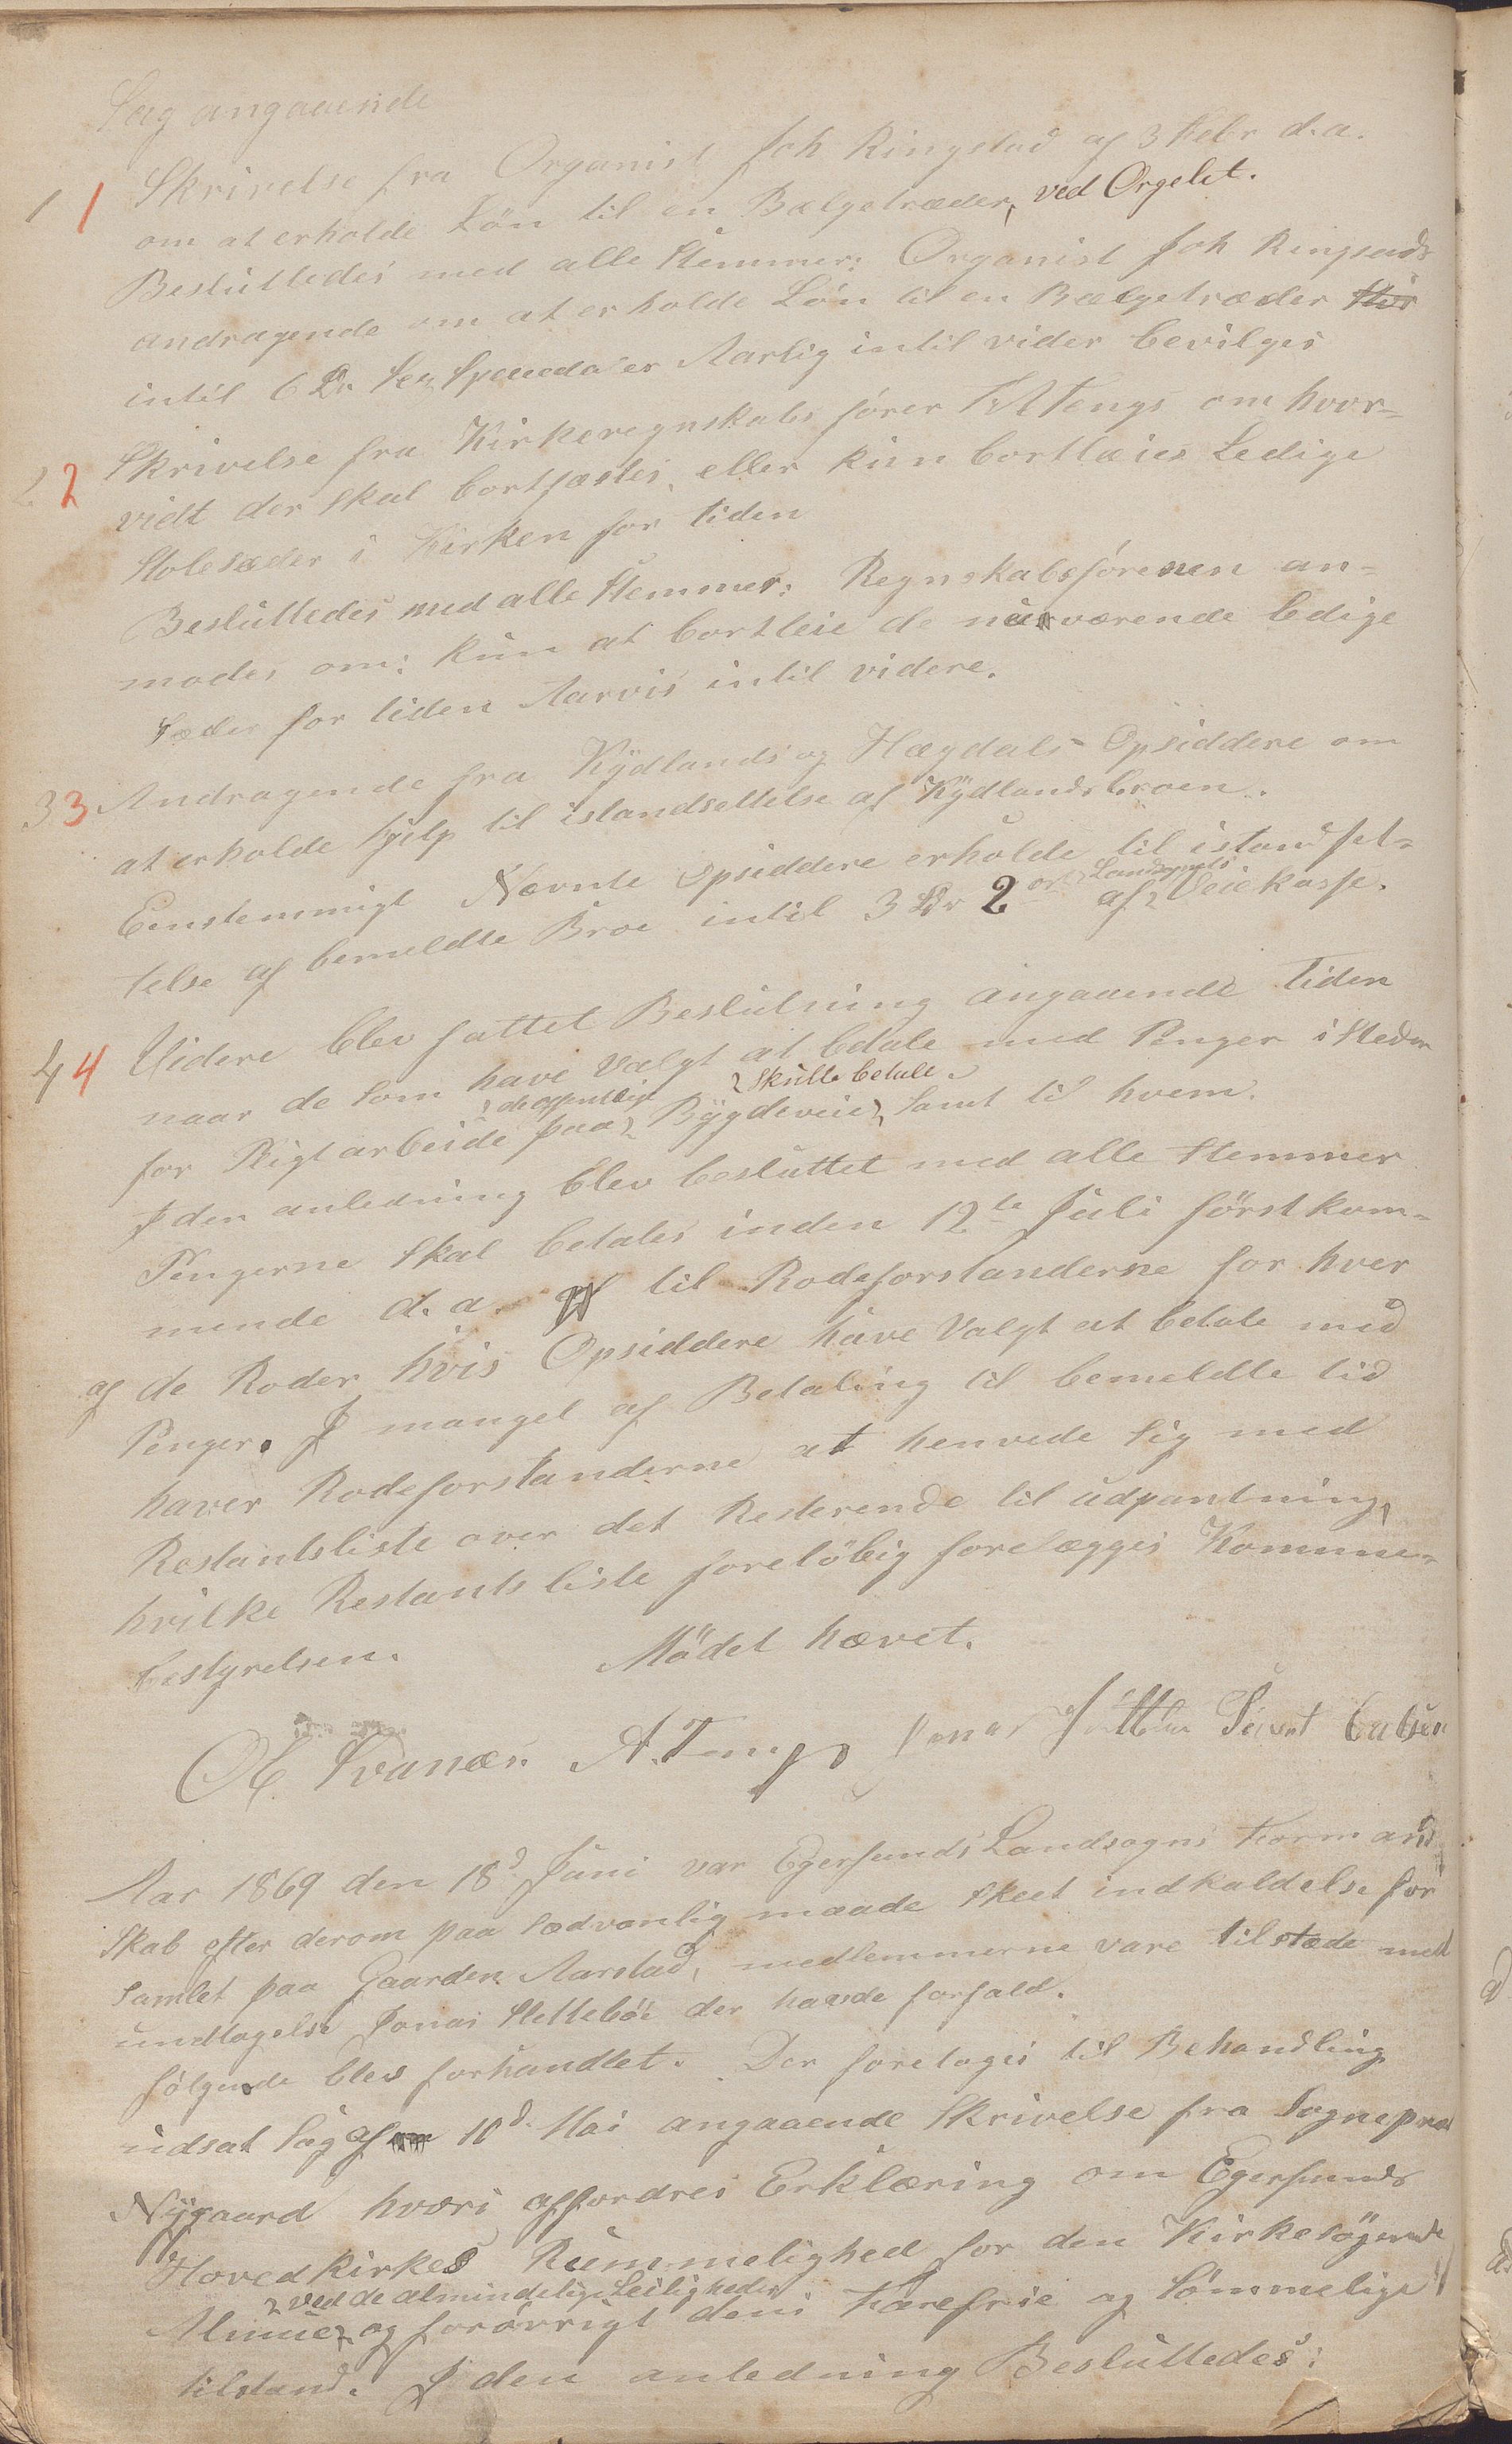 Sag angaaende
1 1 Skrivelse fra Organist Joh Ringstad af 3 Febr d.a.
om at erholde Løn til en Bælgetræder, ved Orgelet.
Besluttedes med alle Stemmer: Organist Joh Ringstads
andragende om at erholde Løn til en Bælgetræder
intil 6 Dr. Sex Speciedaler Aarlig intil vider bevilges
2 2 Skrivelse fra Kirkeregnskabsfører Tengs om hvor-
vidt der skal bortfæstes, eller kun bortlæies Ledige
Stolesæder i Kirken for tiden
Besluttedes med alle Stemmer: Regnskabsføreren an-
modes om: kun at bortleie de nuværende ledige
Sæder for tiden Aarvis intil videre.
3 3 Andragende fra Kydlands og Hægdals Opsiddere om
at erholde hjelp til istandsettelse af Kydlandsbroen.
Eenstemmigt Nævnte Opsiddere erholde til istandset-
telse af bemeldte Broe intil 3 Spdr 2 ort af Landsognets Veiekasse.
4 4 Videre blev fattet Beslutning angaaende tiden
naar de som have Valgt at betale med Penger isteden
for Pligtarbeide paa de offentlige Bygdeveie skulle betale, samt til hvem.
I den anledning blev besluttet med alle Stemmer
Pengerne skal betales inden 12te Juli förstkom-
mende d.a. til Rodeforstanderne for hver
af de Roder hvis Opsiddere have Valgt at betale med
Penger. I mangel af Betaling til bemeldte tid
haver Rodeforstanderne at henvede sig med
Restantsliste over det Resterende til udpantning,
hvilke Restantsliste foreløbig forelægges Kommune-
bestyrelsen. Mödet hævet.
Ol. Svanæs. A. Tengs Jonas
Aar 1869 den 18d Juni var Egersunds Landsogns Formand
skab efter derom paa sædvanlig maade skeet indkaldelse for
samlet paa Gaarden Aarstad, medlemmerne vare tilstæde med
undtagelse Jonas Slettebøe der havde forfald.
følgende blev forhandlet. Der foretoges til Behandling
udsat Sag af 10d Mai angaaende Skrivelse fra Sognepræst
Nygaard hvori affordres Erklæring om Egersunds
Hovedkirkes Rummelighed for den Kirkesøgende
Almue, ved de almindelige Leiligheder og forøvrigt dens Farefrie og Sømmelige
tilstand. I den anledning Besluttedes: